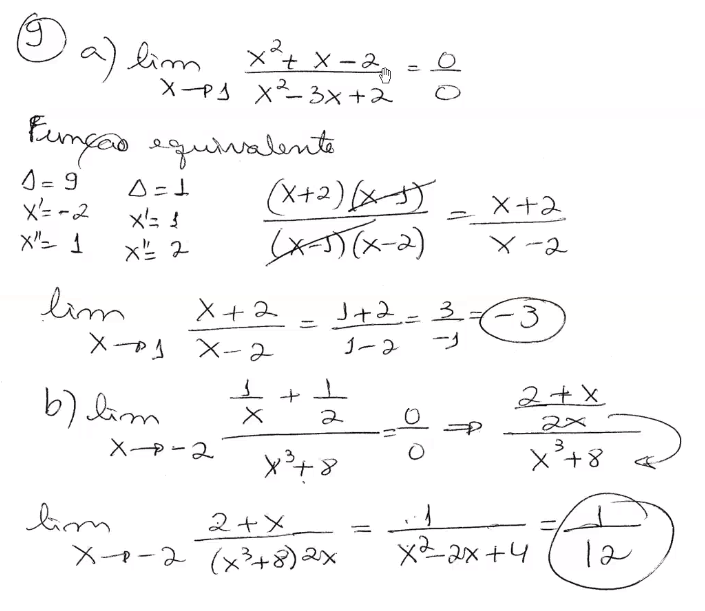 9 a) lim x→1 (x²+x-2)/(x²-3x+2) = 0/0
Função equivalente
Δ=9 Δ=1 (x+2)(x-1)/(x-1)(x-2) = (x+2)/(x-2)
x'=-2 x'=1
x''=1 x''=2
lim x→1 (x+2)/(x-2) = (1+2)/(1-2) = 3/-1 = -3
b) lim x→-2 (1/x + 1/2)/(x³+8) = 0/0 ⇒ ((2+x)/2x)/(x³+8)
lim x→-2 (2+x)/((x³+8)2x) = 1/(x²-2x+4) = 1/12